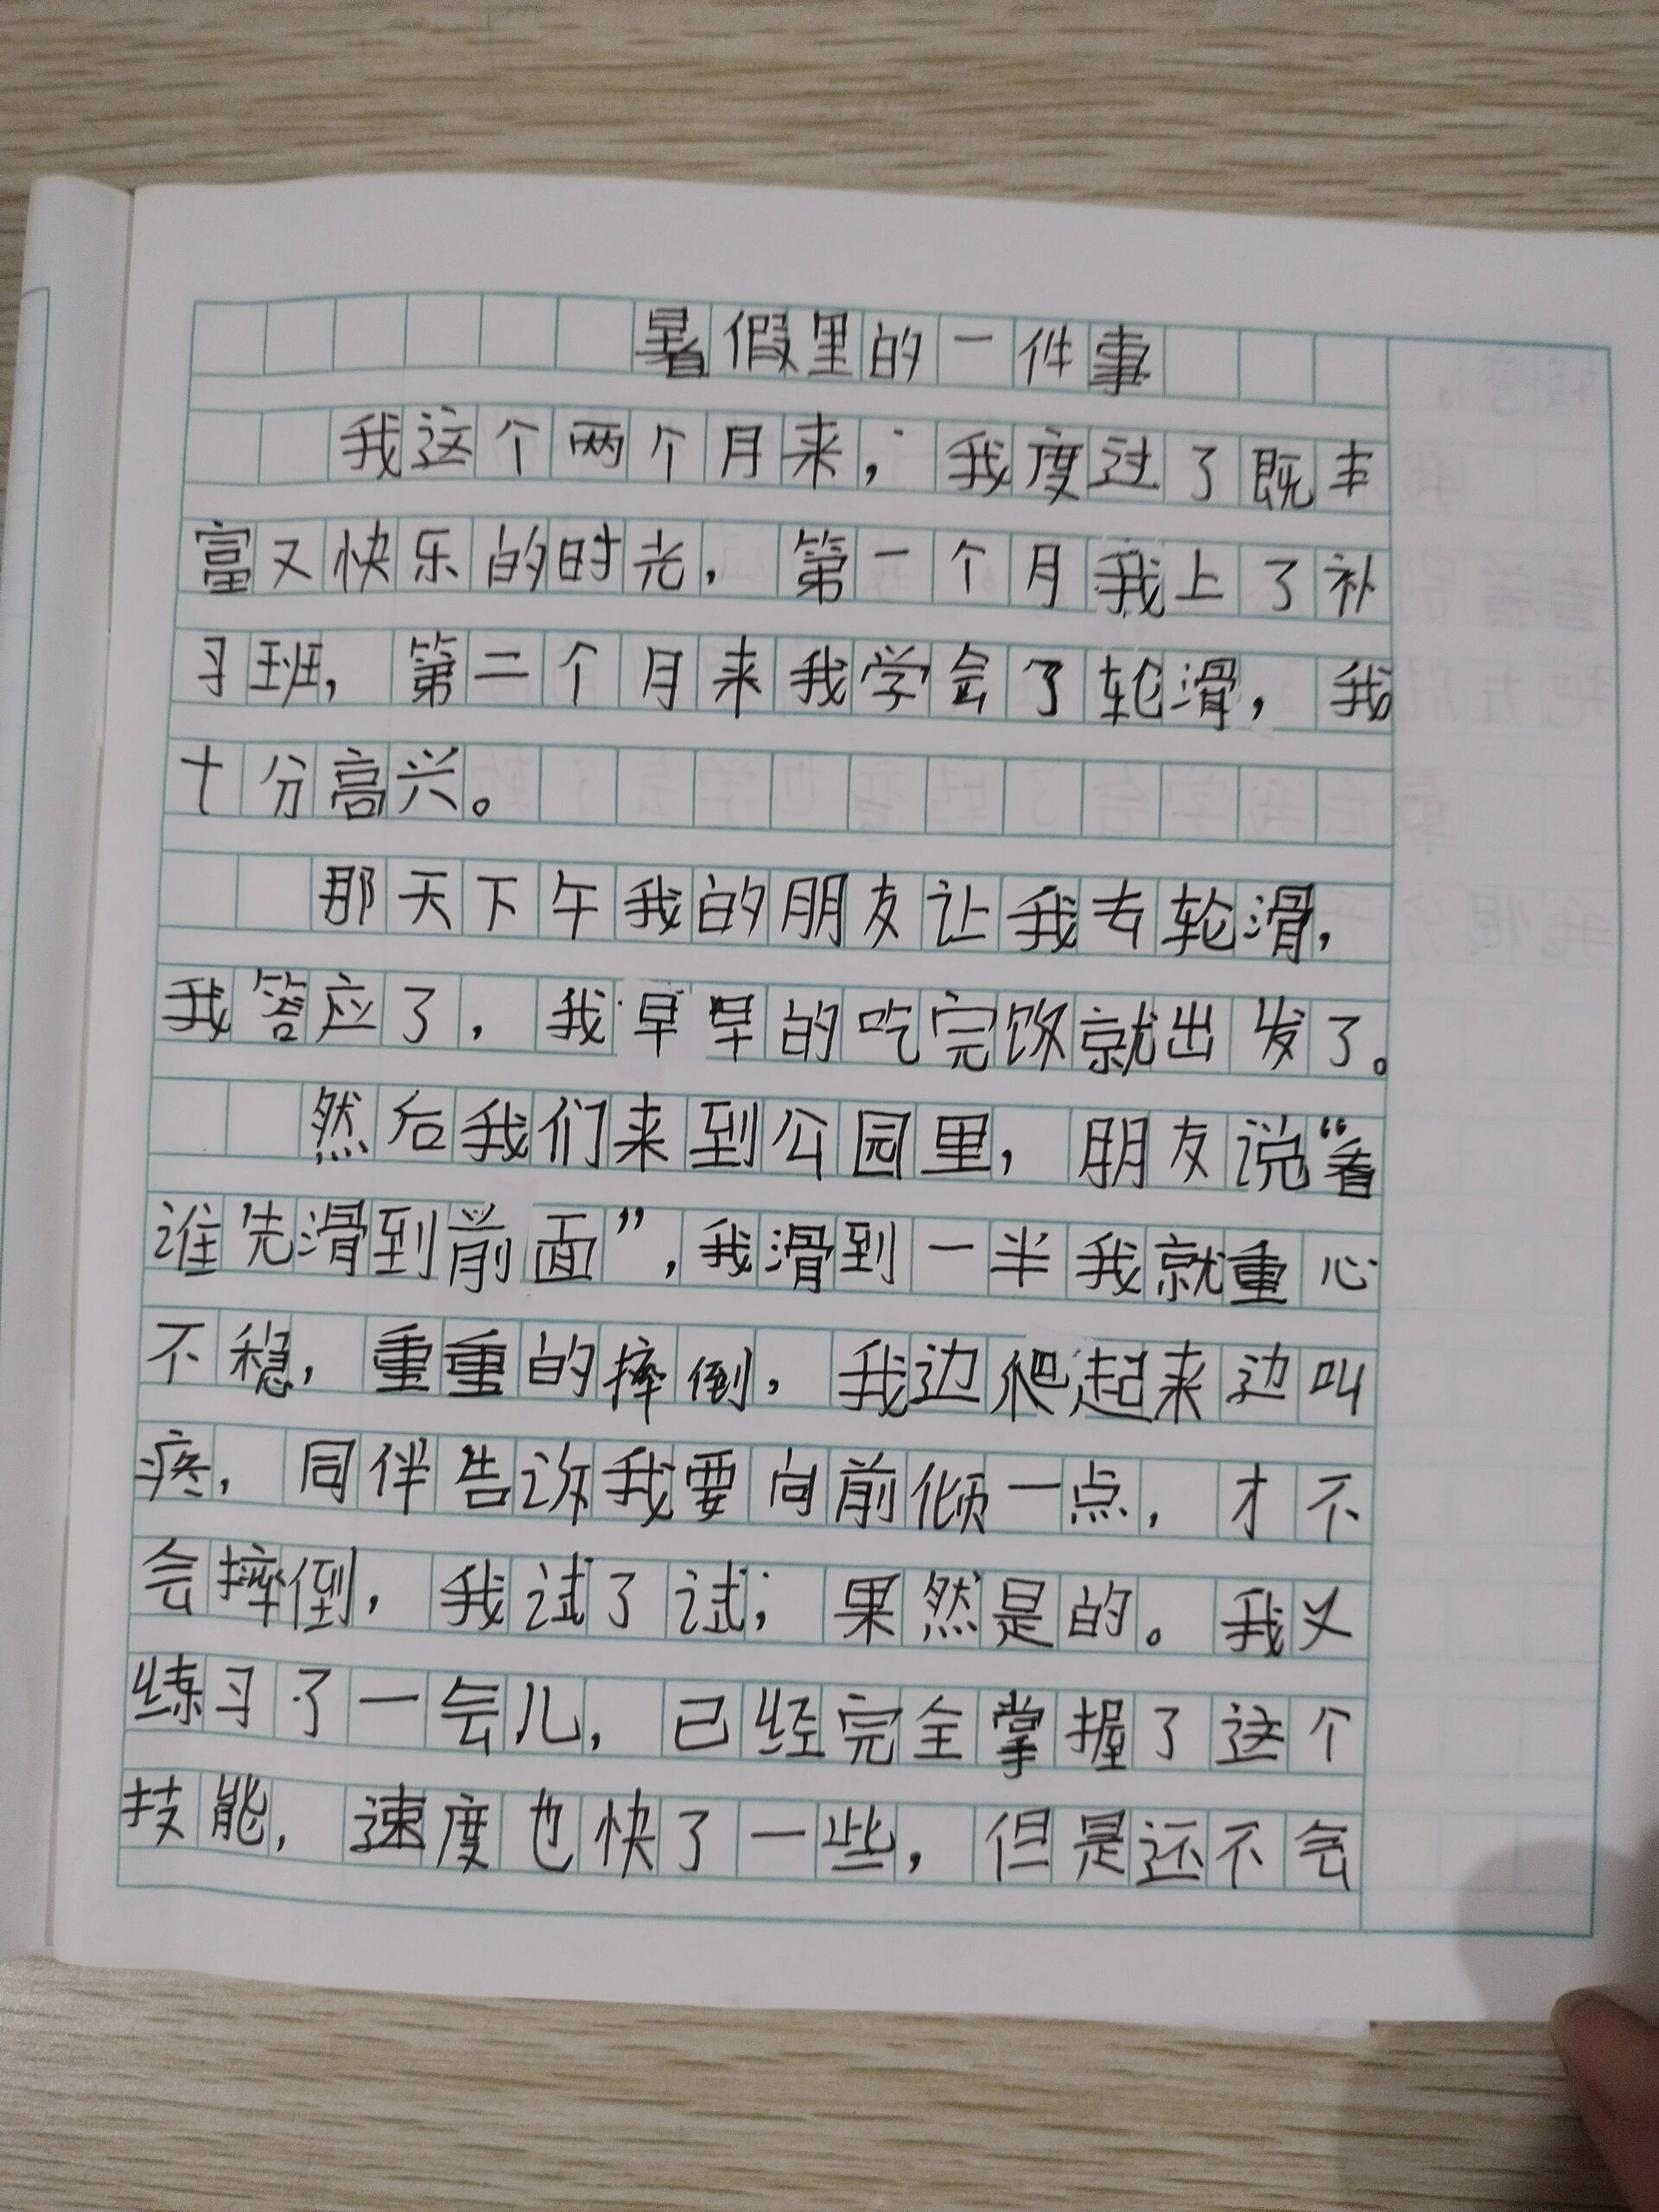 暑假里的一件事
我这个两个月来，我度过了既丰
富又快乐的时光，第一个月我上了补
习班，第二个月来我学会了轮滑，我
十分高兴。
那天下午我的朋友让我去轮滑，
我答应了，我早早的吃完饭就出发了。
然后我们来到公园里，朋友说“看
谁先滑到前面”，我滑到一半我就重心
不稳，重重的摔倒，我边爬起来边叫
疼，同伴告诉我要向前倾一点，才不
会摔倒，我试了试；果然是的。我又
练习了一会儿，已经完全掌握了这个
技能，速度也快了一些，但是还不会